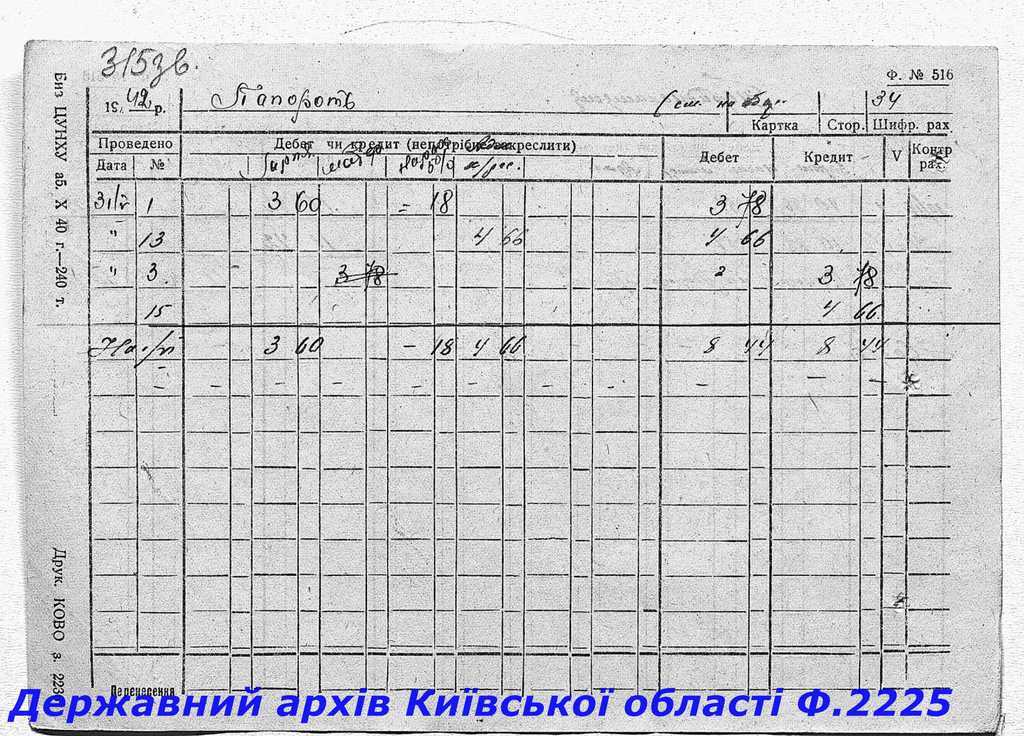 315 зв.
Ф. № 516
19 42 р. Папороть (см. на 34
Картка Стор. Шифр. рах
Проведено Дебет чи кредит (непотрібне закреслити) Дебет Кредит V Контр рах.
Дата №
31/V 1 3 60 = 18 3 78
" 13 4 66 4 66
" 3 3 78 " 3 78
15 4 66
3 60 – 18 4 66 8 44 8 44
– – – – – – – – – – – –
Перенесення
Биз ЦУНХУ аб. X 40 г.—240 т.
Друк. КОВО з. 223
Державний архів Київської області Ф.2225